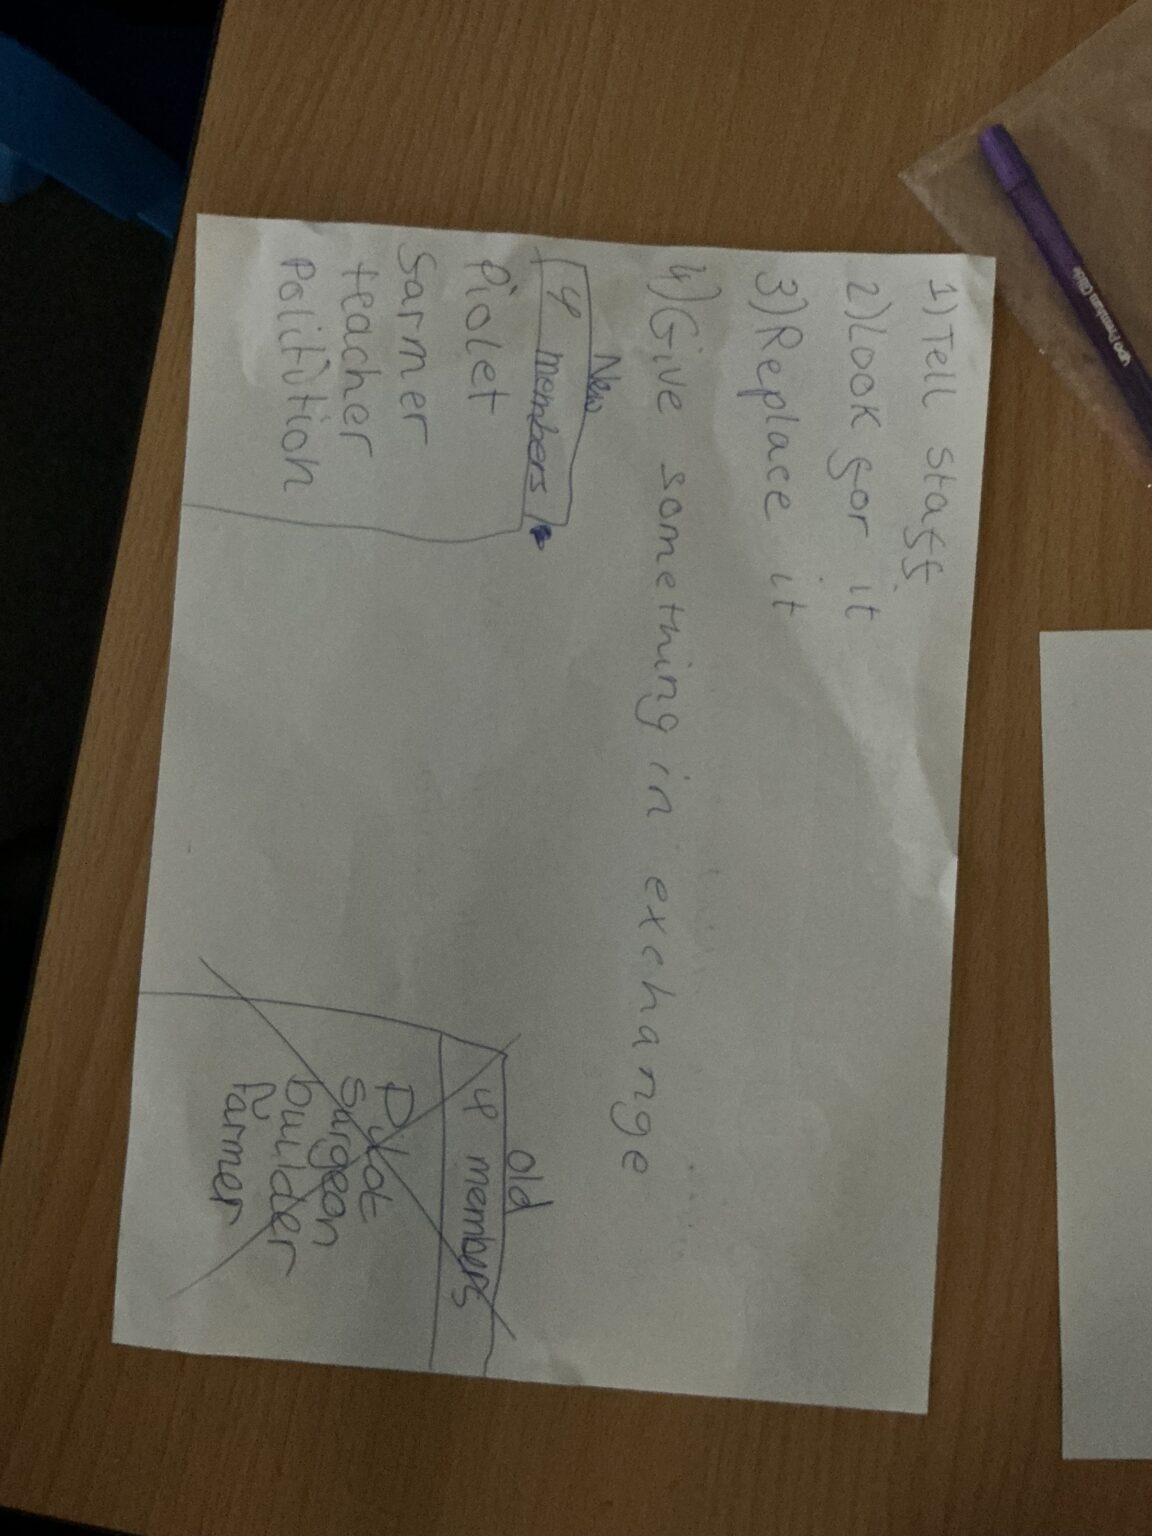 1) Tell staff.
2) Look for it
3) Replace it
4) Give something in exchange
New
4 members
Piolet
Sarmer
teacher
Polition
old
4 members
Pilot
Surgeon
builder
Farmer